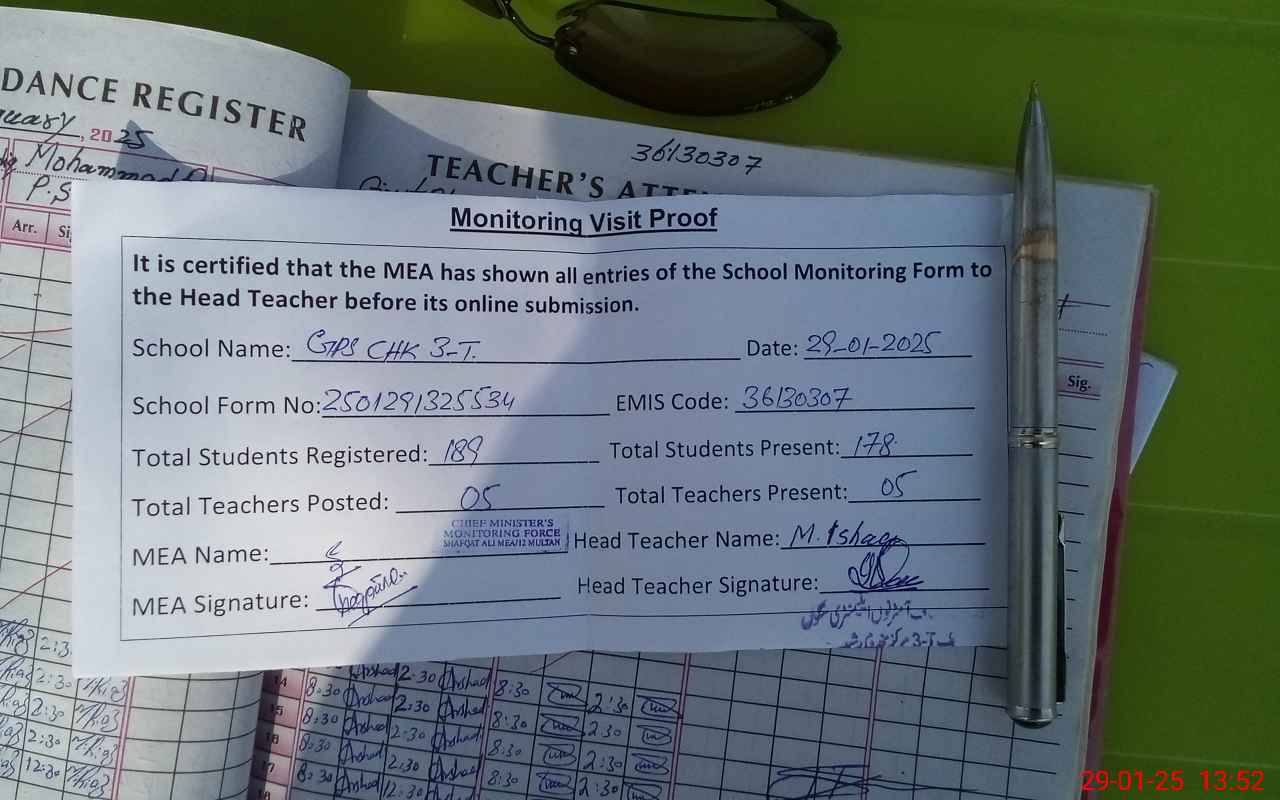 DANCE REGISTER
, 2025
Mohammad
P.S
Arr.
36130307
TEACHER'S ATTE
Monitoring Visit Proof
It is certified that the MEA has shown all entries of the School Monitoring Form to
the Head Teacher before its online submission.
School Name: GPS CHK 3-T. Date: 29-01-2025
School Form No: 2501291325534 EMIS Code: 36130307
Total Students Registered: 189 Total Students Present: 178
Total Teachers Posted: 05 Total Teachers Present: 05
CHIEF MINISTER'S
MONITORING FORCE
SHAFQAT ALI MEA/12 MULTAN
MEA Name: Head Teacher Name: M. Ishaq
MEA Signature: Head Teacher Signature:
Sig.
14 8:30 Arshad 2:30 Arshad 8:30 2:30
15 8:30 Arshad 2:30 Arshad 8:30 2:30
16 8:30 Arshad 2:30 Arshad 8:30 2:30
17 8:30 Arshad 2:30 Arshad 8:30 2:30
18 12:30
2:30
2:30
2:30
12:30
29-01-25 13:52